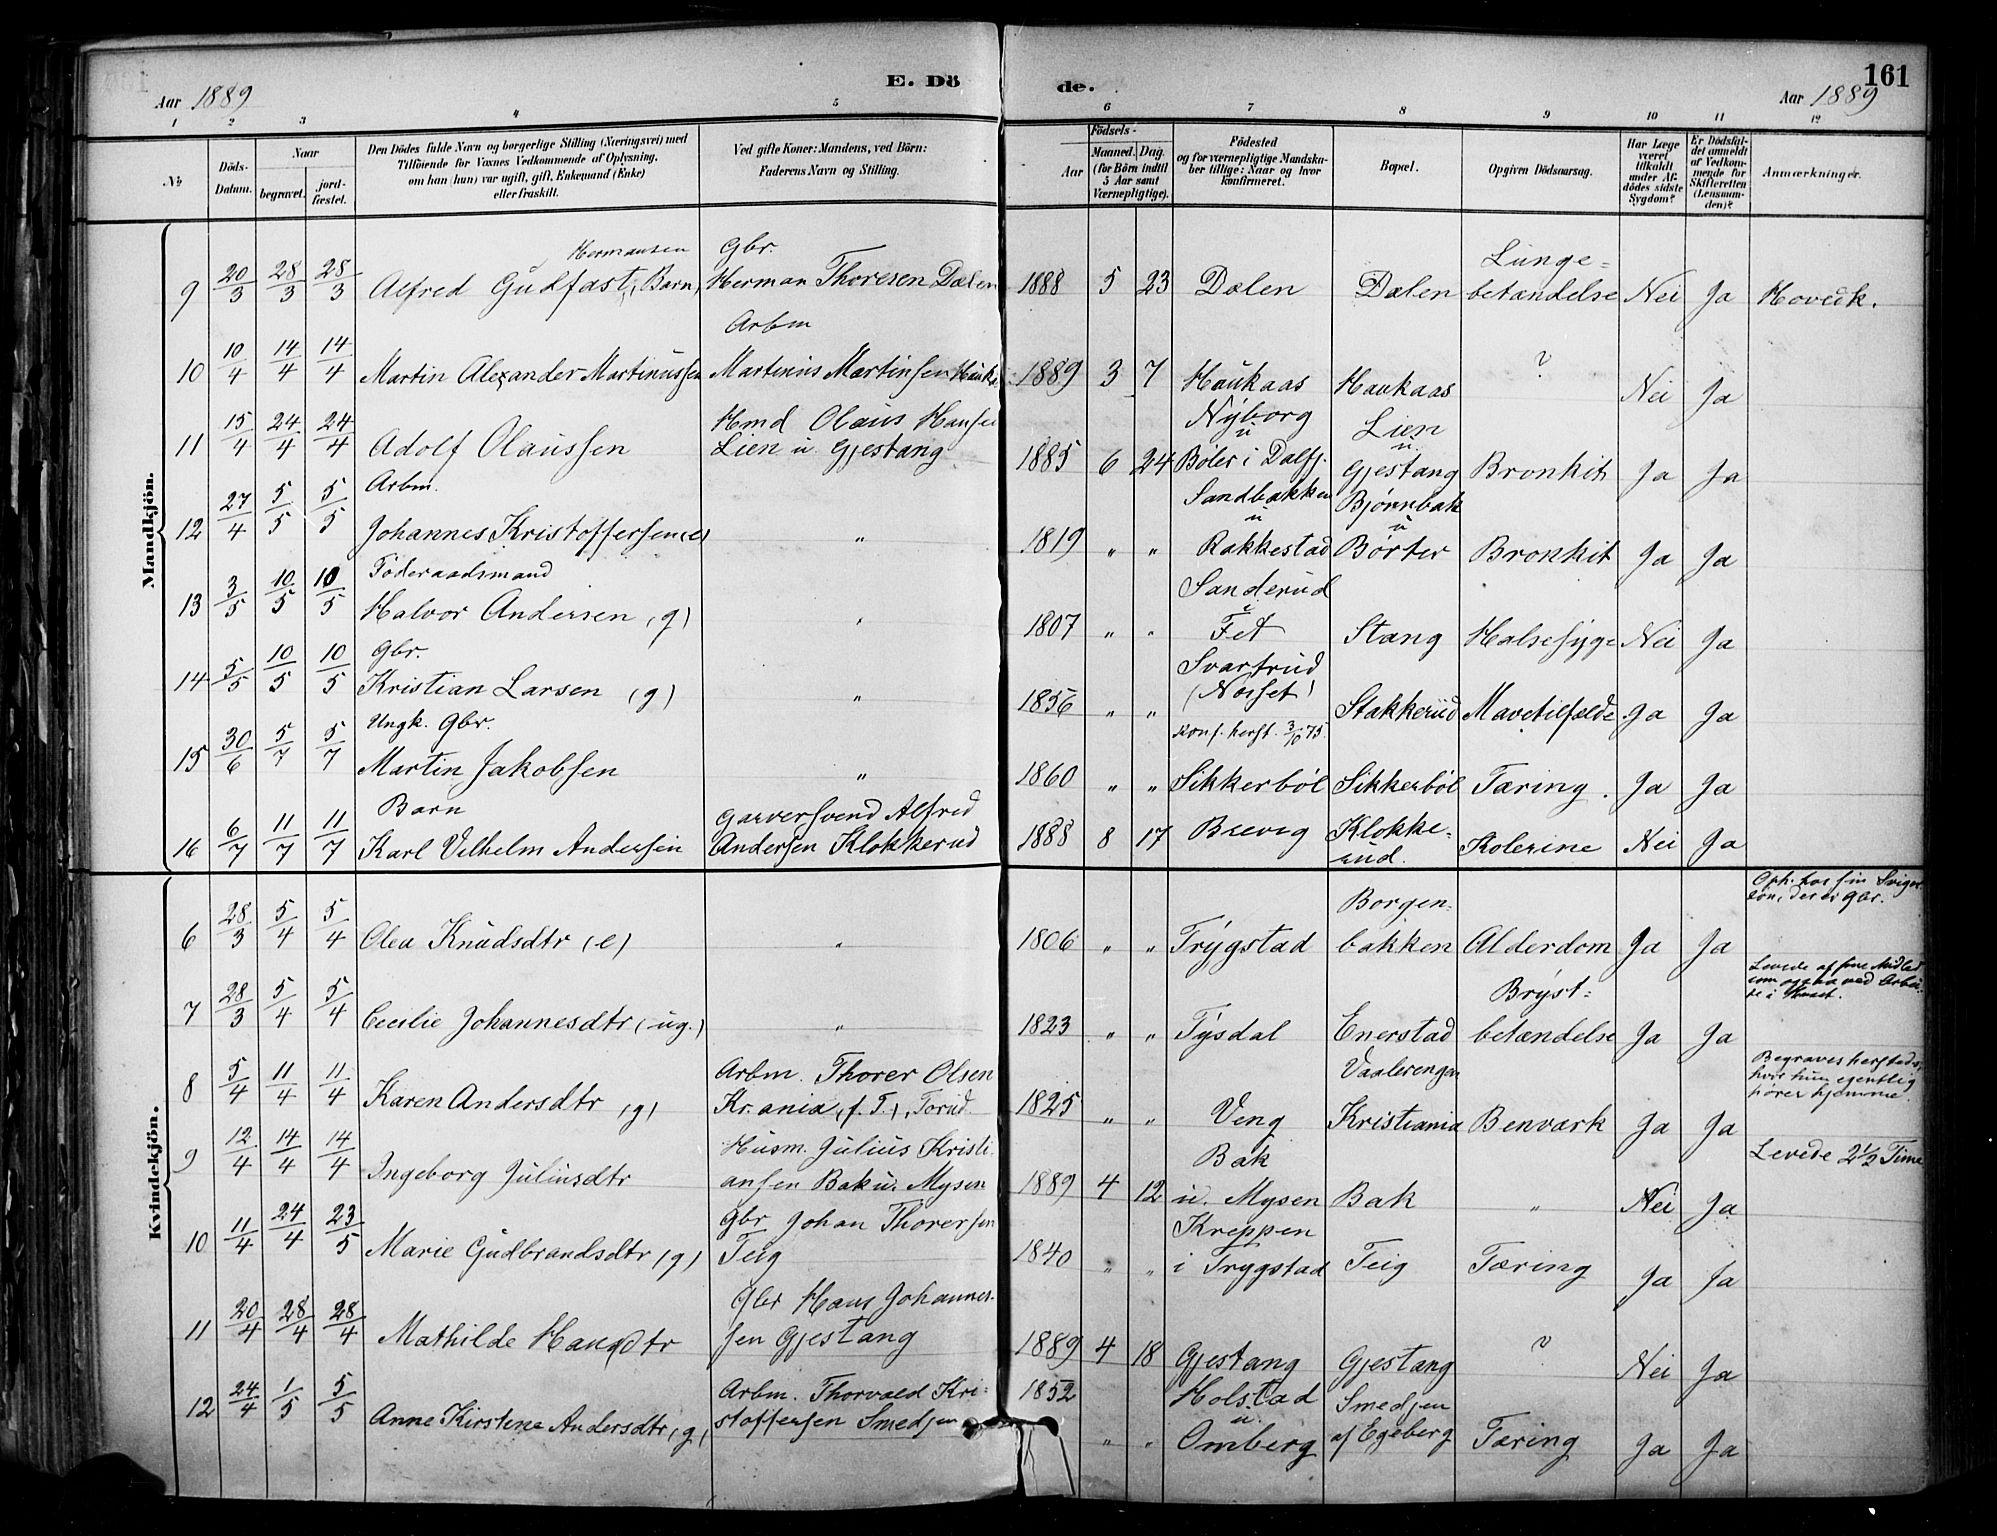 E. Dö de. 161
Aar 1889 Aar 1889
1 2 3 4 5 6 7 8 9 10 11 12
№
Döds-Datum.
Naar
begravet. jordfæstet.
Den Dödes fulde Navn og borgerlige Stilling (Næringsvei) med
Tilföiende for Voxnes Vedkommende af Oplysning,
om han (hun) var ugift, gift, Enkemand (Enke)
eller fraskilt.
Ved gifte Koner: Mandens, ved Börn:
Faderens Navn og Stilling.
Födsels-
Aar Maaned. Dag.
(for Börn indtil
5 Aar samt
Værnepligtige).
Födested
og for værnepligtige Mandska-
ber tillige: Naar og hvor
konfirmeret.
Bopæl.
Opgiven Dödsaarsag.
Har Læge
været
tilkaldt
under Af-
dödes sidste
Sygdom?
Er Dödsfal-
det anmeldt
af Vedkom-
mende for
Skifteretten
(Lensman-
den)?
Anmærkninger.
Mandkjön.
Hermansen Gbr. Lunge=
9 20/3 28/3 28/3 Alfred Gudfast, Barn, Herman Thoresen Dælen 1888 5 23 Dælen Dælen betændelse Nei Ja Hovedk.
Arbm
10 10/4 14/4 14/4 Martin Alexander Martinussen Martinius Martinsen 1889 3 7 Haukaas Haukaas ? Nei Ja
Hmd Olaus Hansen Nyborg Lien
11 15/4 24/4 24/4 Adolf Olaussen Lien u. Gjestang 1885 6 24 u Böler i Dalsj. u Gjestang Bronkit Ja Ja
Arbm. Sandbakken Bjönnbak
12 27/4 5/5 5/5 Johannes Kristoffersen (e) " 1819 " " u Rakkestad u Börter Bronkit Ja Ja
Föderaadsmand Sanderud
13 3/5 10/5 10/5 Halvor Andersen (g) " 1807 " " i Fet Stang Halsesyge Nei Ja
Gbr. Svartrud
14 5/5 10/5 10/5 Kristian Larsen (g) " 1856 " " (Næsset) Stakkerud Mavetilfælde. Ja Ja
Ungk. Gbr. konf. herst. 3/10 75.
15 30/6 5/7 5/7 Martin Jakobsen " 1860 " " Sikkerböl Sikkerböl Tæring. Ja Ja
Barn Garversvend Alfred
16 6/7 11/7 11/7 Karl Vilhelm Andersen Andersen Klokkerud 1888 8 17 Brevig Klokke=rud. Kolerine Nei Ja
Kvindekjön.
Borgen- Oph. hos sin Sviger-
sön, der er Gbr.
6 28/3 5/4 5/4 Olea Knudsdtr (e) " 1806 " " Trygstad bakken Alderdom Ja Ja
Bryst= Levede af sine Midler
som ogsaa ved Arbei-
de i Huset.
7 28/3 5/4 5/4 Cecilie Johannesdtr (ug.) " 1823 " " Tysdal Enerstad betændelse Ja Ja
Arbm. Thorer Olsen Vaalerengen Begraves herstads,
hvor hun egentlig
hörer hjemme.
8 5/4 11/4 11/4 Karen Andersdtr (g) Kr.ania, (f. T.), Torud 1825 " " Veng Kristiania Benværk Ja Ja
Husm. Julius Kristi- Bak Levede 2½ Time
9 12/4 14/4 14/4 Ingeborg Juliusdtr ansen Bak u. Mysen 1889 4 12 u. Mysen Bak " Nei Ja
Gbr Johan Thorersen Kreppen
10 11/4 24/4 23/5 Marie Gudbrandsdtr (g) Teig 1840 " " i Trygstad Teig Tæring Ja Ja
Gbr Hans Johannes-
11 20/4 28/4 28/4 Mathilde Hansdtr sen Gjestang 1889 4 18 Gjestang Gjestang ? Nei Ja
Arbm. Thorvald Kri= 1852 Holstad Smedjen
12 24/4 1/5 5/5 Anne Kirstine Andersdtr (g) stoffersen Smedjen " " u. Omberg af Egeberg Tæring Ja Ja